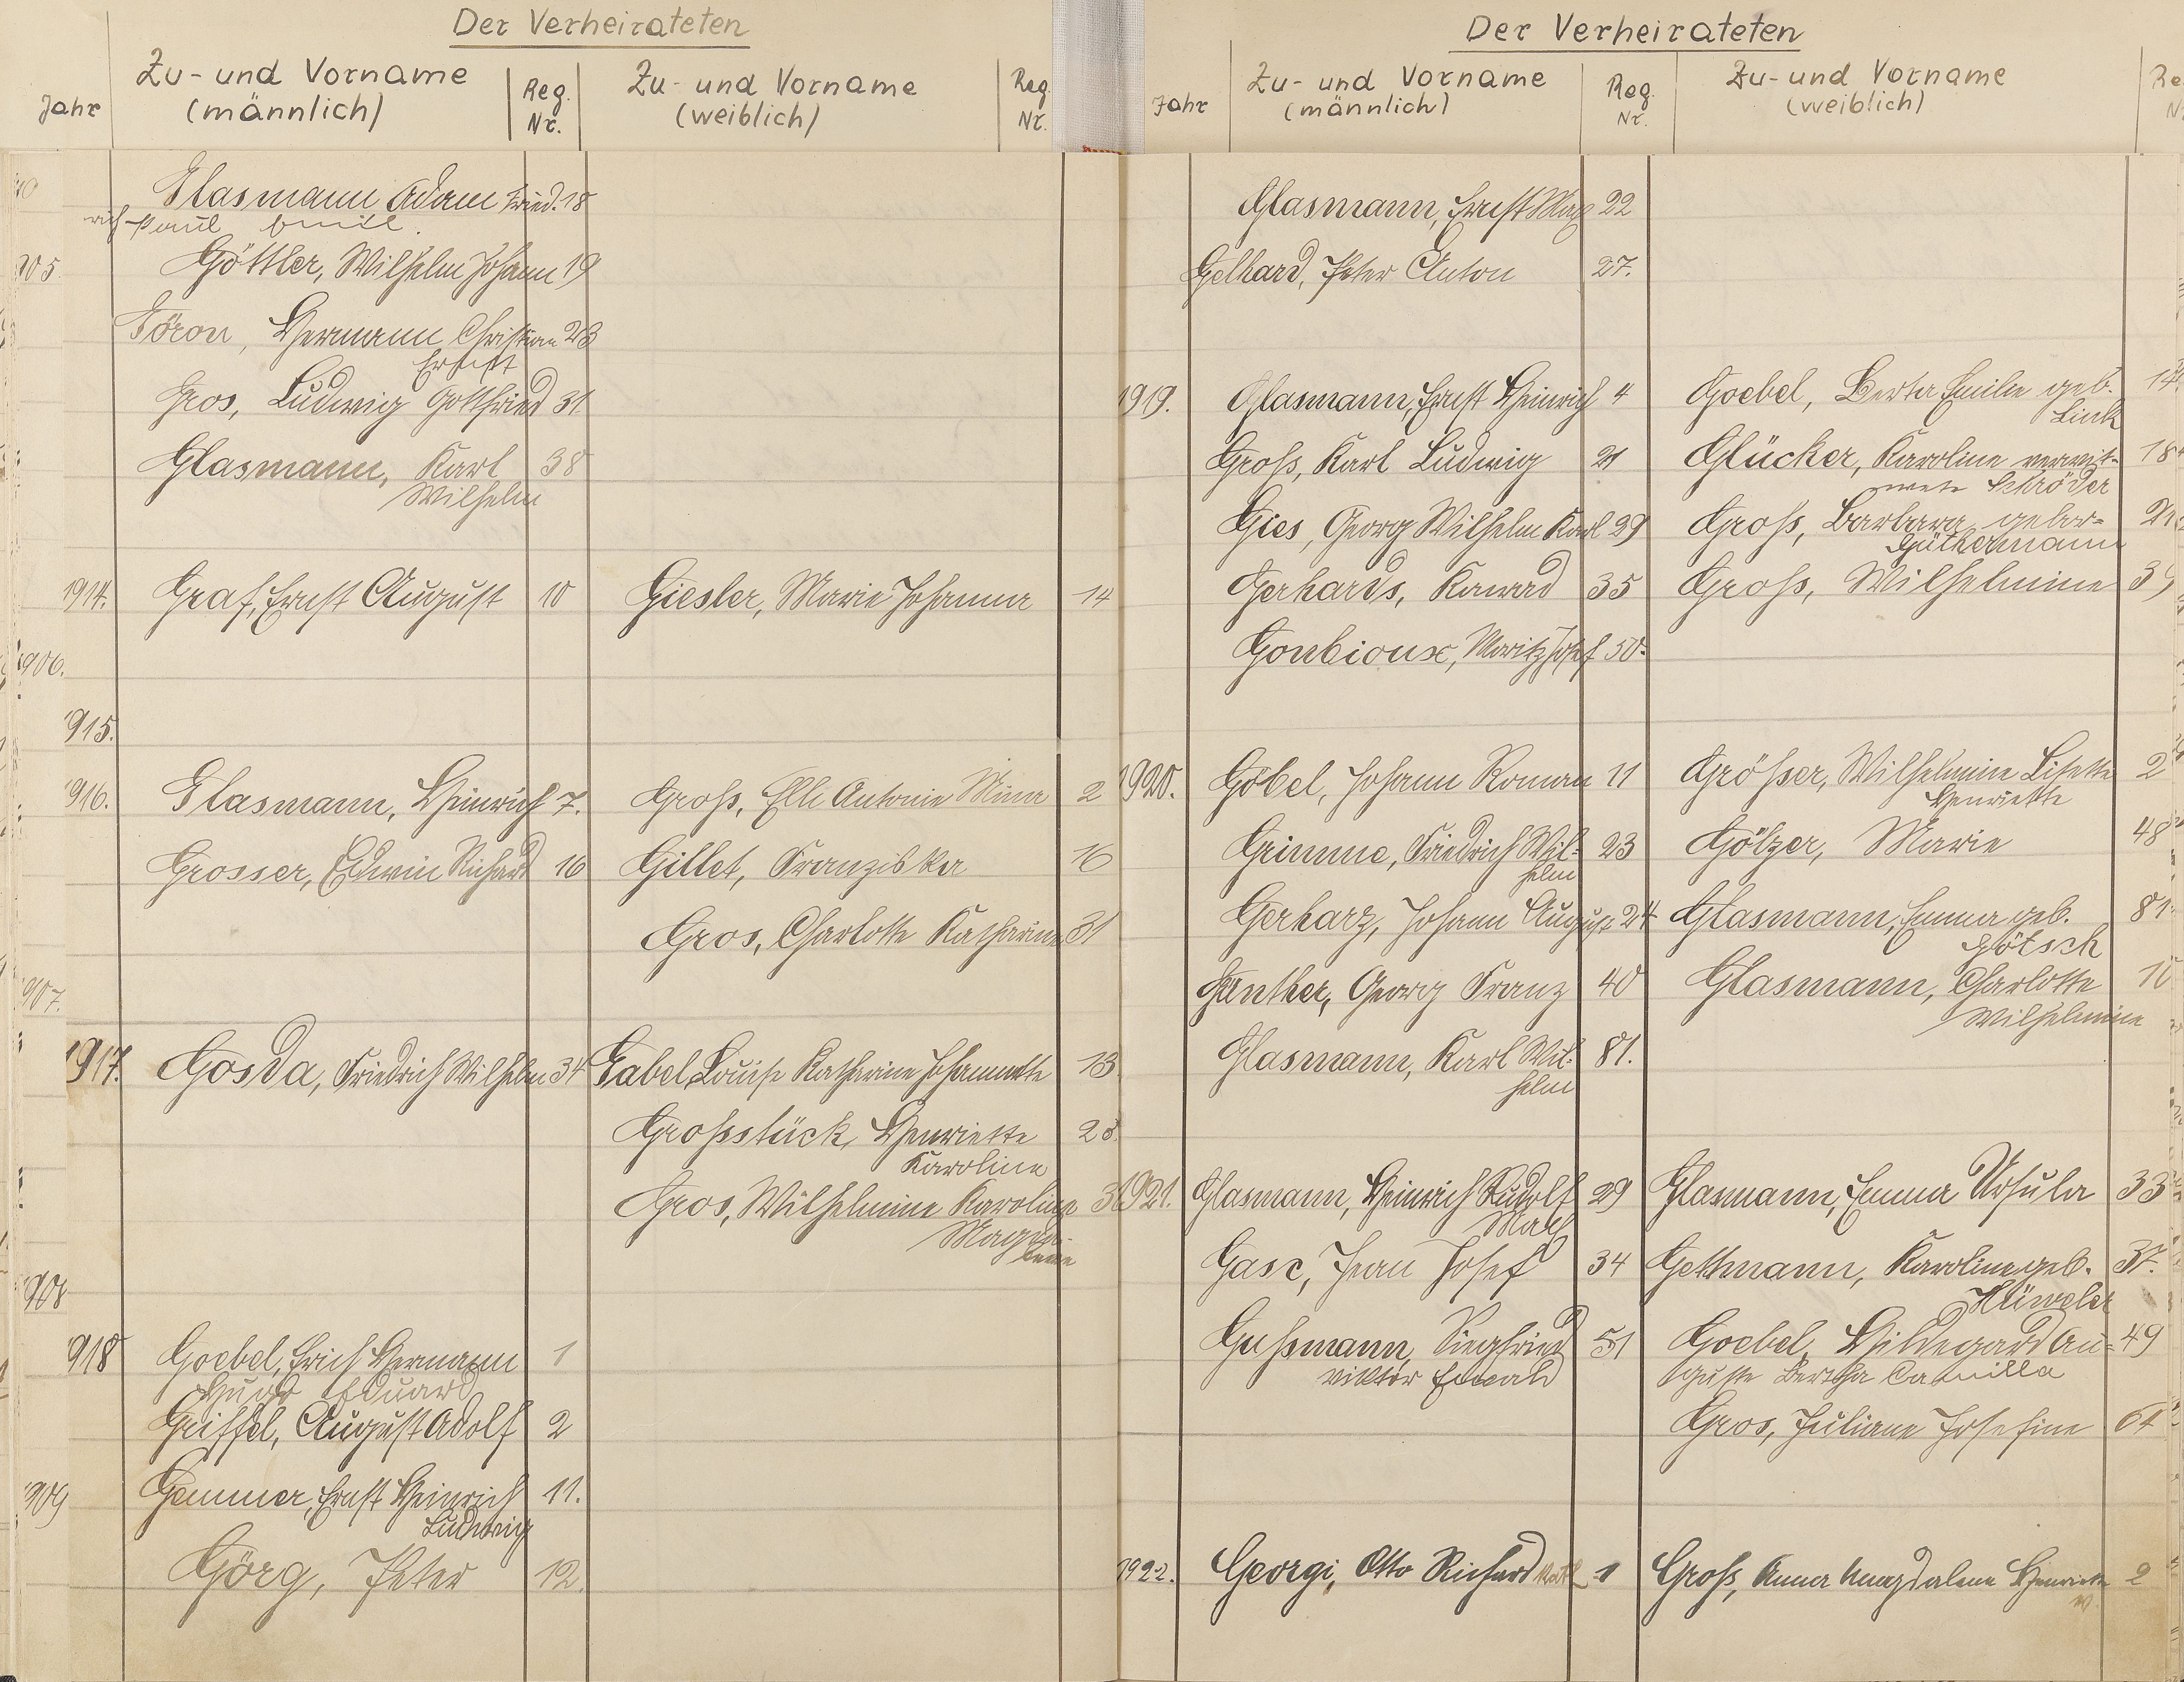 Der Verheirateten
Jahr
Zu- und Vorname
(männlich)
Reg.
Nr.
Zu- und Vorname
(weiblich)
Reg.
Nr.
Glasmann Adam Fried. 18
rich Paul Emil.
905. Göttler, Wilhelm Johann 19
Hermann Christian 23
Ernst
Gros, Ludwig Gottfried 31.
Glasmann, Karl 38
Wilhelm
1914. Graf, Ernst August 10 Giesler, Marie Johanna 14
906.
915.
916. Glasmann, Heinrich 7. Groß, Elli Antonie Minna 2
Grosser, Edwin Richard 16 Gillet, Franziska 16
Gros, Charlotte Katharina 31
907.
1917. Gosda, Friedrich Wilhelm 34 Gabel, Louise Katharine Johannette 13
Großstück, Henriette 28
Karoline
Gros, Wilhelmine Karoline 3
Magda-
lene
908
918 Goebel, Erich Hermann 1
Hugo Eduard
Griffel, August Adolf 2
909 Gemmer, Ernst Heinrich 11.
Ludwig
Görg, Peter 12.
Der Verheirateten
Jahr
Zu- und Vorname
(männlich)
Reg.
Nr.
Zu- und Vorname
(weiblich)
Re
N
Glasmann, Ernst Max 22
Gelhard, Peter Anton 27.
1919. Glasmann, Ernst Heinrich 4 Goebel, Berta Emilie geb. 14
Link
Groß, Karl Ludwig 21 Glücker, Karoline verwit- 18
wete Schröder
Gies, Georg Wilhelm Karl 29 Groß, Barbara gebor- 21
Güthermann
Gerhards, Konrad 35 Groß, Wilhelmine 39
Gonbioux, Moritz Josef 50.
1920. Göbel, Johann Roman 11 Größer, Wilhelmine Lisette 2
Henriette
Grimme, Friedrich Wil- 23 Gölzer, Marie 48
helm
Gerharz, Johann August 24 Glasmann, Emma geb. 81.
Götsch
Günther, Georg Franz 40 Glasmann, Charlotte
Wilhelmine
Glasmann, Karl Wil- 81.
helm
1921. Glasmann, Heinrich Rudolf 29 Glasmann, Emma Ursula 33
Max
Gasc, Jean Josef 34 Gethmann, Karoline geb. 37.
Hüweler
Gußmann, Siegfried 51 Goebel, Hildegard Au- 49
Viktor Ewald guste Bertha Camilla
Gros, Juliane Josefine 61
1922. Georgi, Otto Richard 1 Groß, Anna Magdalena Henriette 2